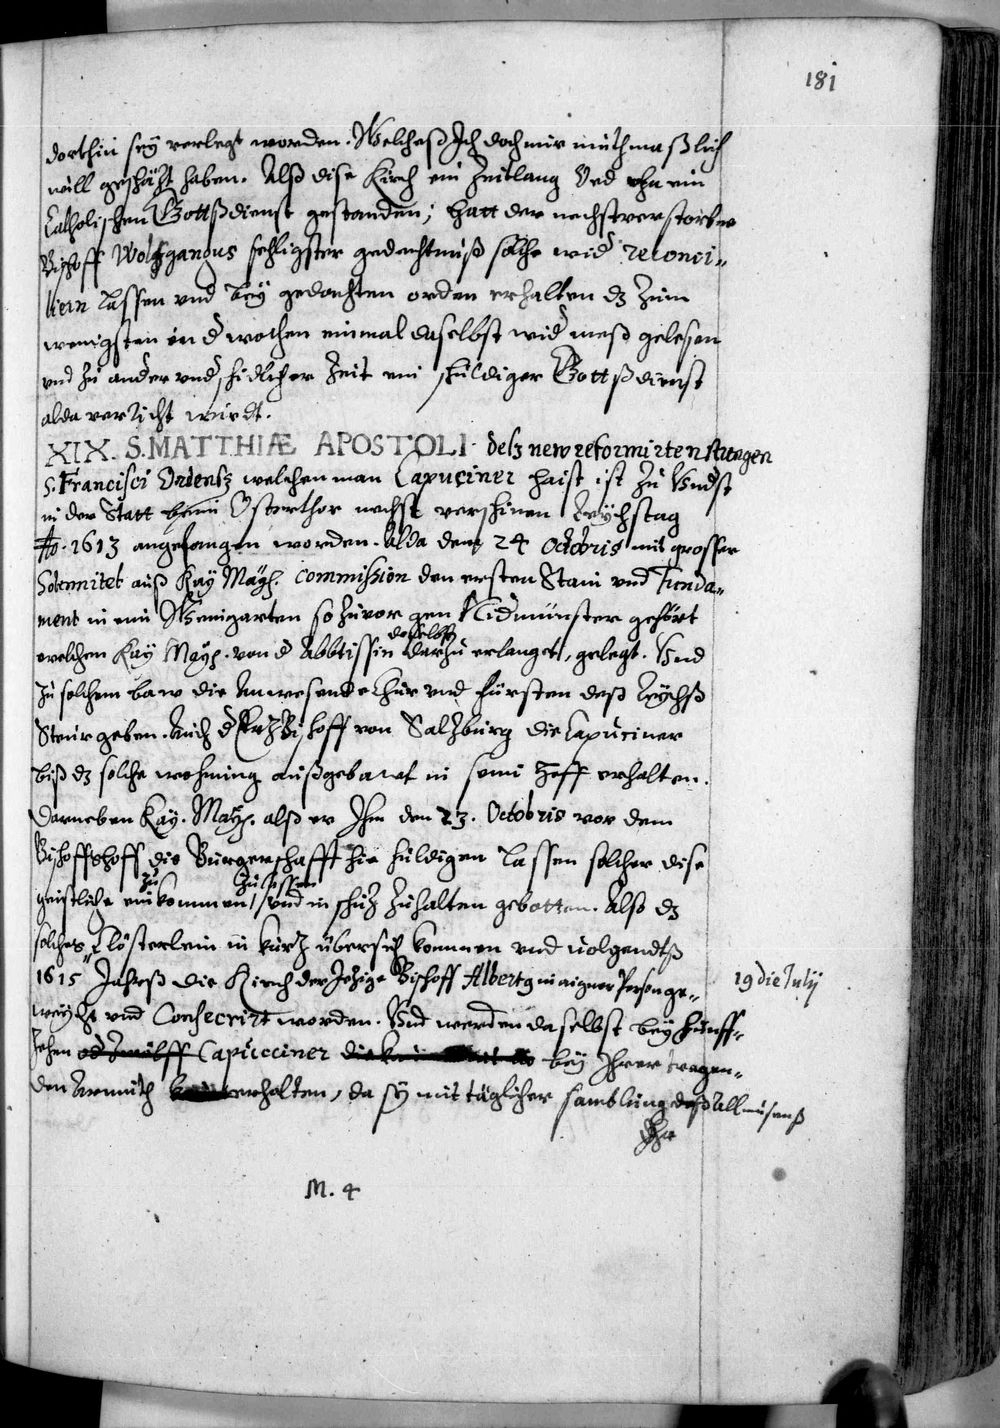 181
dorthin sey verlegt worden. Welcheß Ich doch nur muthmaßlich
will geschätzt haben. Alß dise Kirch ein Zeitlang Öed ohn ein
Catholischen Gottßdienst gestanden; hatt der nechstverstorbne
Bischoff Wolfgangus sehligster gedechtnuß solche wid reconci-
liern lassen vnd bey gedachten orden erhalten dz zum
wenigsten in d wochen einmal daselbst wid meß gelesen
vnd zu ander vndschidlicher Zeit ein schuldiger Gottßdienst
alda verricht würdt.
XIX. S. MATTHIÆ APOSTOLI. deß new reformirten strengen
S. Francisci Ordenß welchen man Capuciner haist ist zu
in der Statt beim Osterthor nechst verschinen Reychstag
Ao. 1613 angefangen worden. Alda dem 24 Octobris mit grosser
Solennitet auß Kay. May. commission den ersten Stain vnd Funda-
ment in ein Weingarten so zuvor gen Nidmünster gehört
welchen Kay May. von d Abbtissin daselbst darzu erlanget, gelegt. Vnd
zu solchem baw die Anwesende Chur vnd Fürsten deß Reychß
Steur geben. Auch d ErtzBischoff von Saltzburg die Capuciner
biß dz solche wohnung außgebawt in seim Hoff erhalten.
Darneben Kay. May. alß er Ihm den 23. Octobris vor dem
Bischoffshoff die Burgerschafft hie huldigen lassen solcher dise
geistliche zu einkommen zulassen vnd in schutz zuhalten gebotten. Also dz
solches Clösterlein in kurtz übersich kommen vnd volgendtß
1615 Jahreß die Kirch der Jetzige Bischoff Albertg in aigner Person ge-
19 die July
weycht vnd Consecrirt worden. Vnd werden daselbst bey fünff-
zehen od zwölff Capucciner bey Ihrer tragen-
den Armuth erhalten, da sy mit täglicher samblung deß Allmusenß
Ihr
M. 4